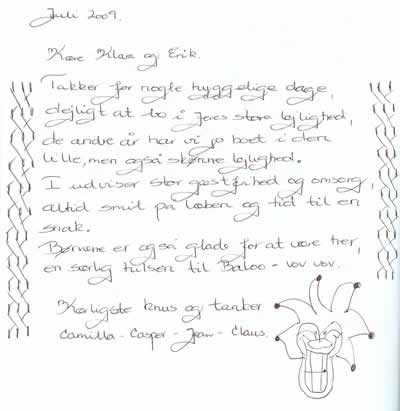 Juli 2009.
Kære Klara og Erik.
Takker for nogle hyggelige dage,
dejligt at bo i jeres store lejlighed,
de andre år har vi jo boet i den
lille, men også skønne lejlughed.
I udviser stor gæstfrihed og omsorg,
altid smil på læben og tid til en
snak.
Børnene er også glade for at være her,
en særlig hilsen til Baloo - vov vov.
Kærligste knus og tanker
Camilla - Casper - Jean - Claus.